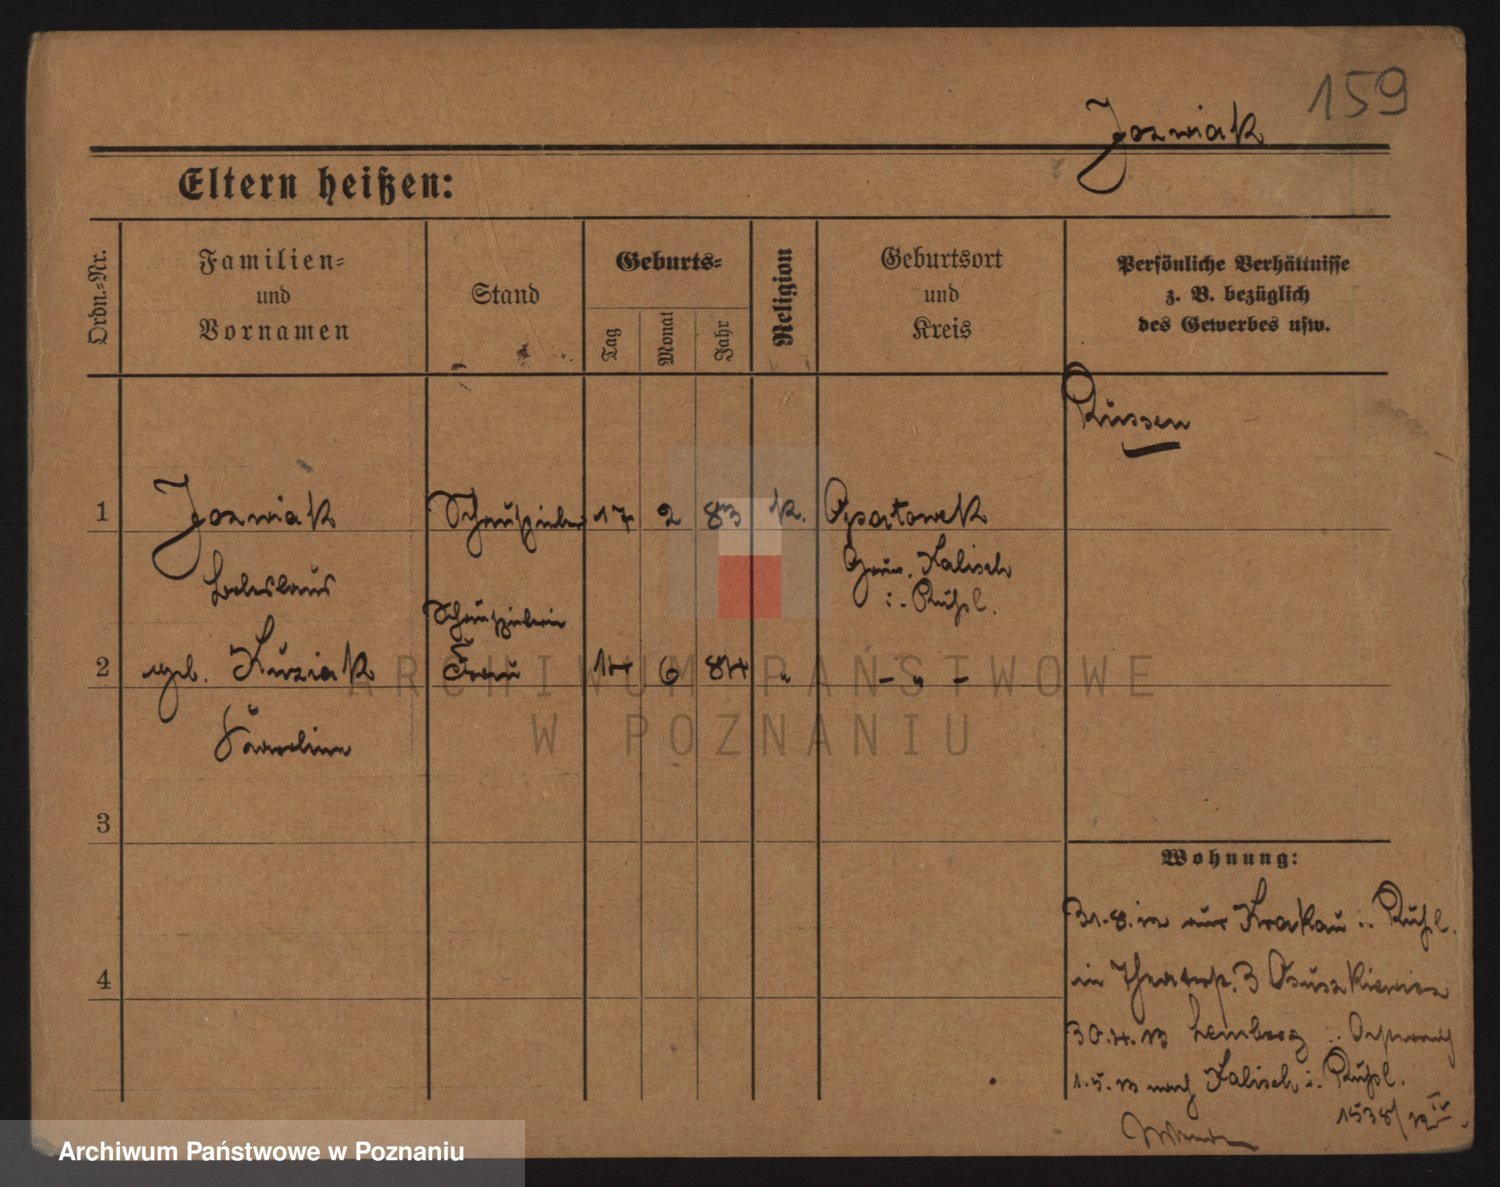 159
Jozwiak
Eltern heißen:
Ordn.-Nr.
Familien-
und
Vornamen
Stand
Geburts-
Tag
Monat
Jahr
Religion
Geburtsort
und
Kreis
Persönliche Verhältnisse
z. B. bezüglich
des Gewerbes usw.
Russen
1 Jozwiak Schauspieler 17 2 83 k. Opatowek
Boleslaus
Gouv. Kalisch
i. Rußl.
Schauspielerin
2 geb. Kuziak Frau 14 6 84 " - " -
Karoline
3
4
Wohnung:
31.8.12 aus Krakau i. Rußl.
in Theaterp. 3
30.4.13 Lemberg
1.5.13 nach Kalisch i. Rußl.
1538/12 IV
ARCHIWUM PAŃSTWOWE
W POZNANIU
Archiwum Państwowe w Poznaniu